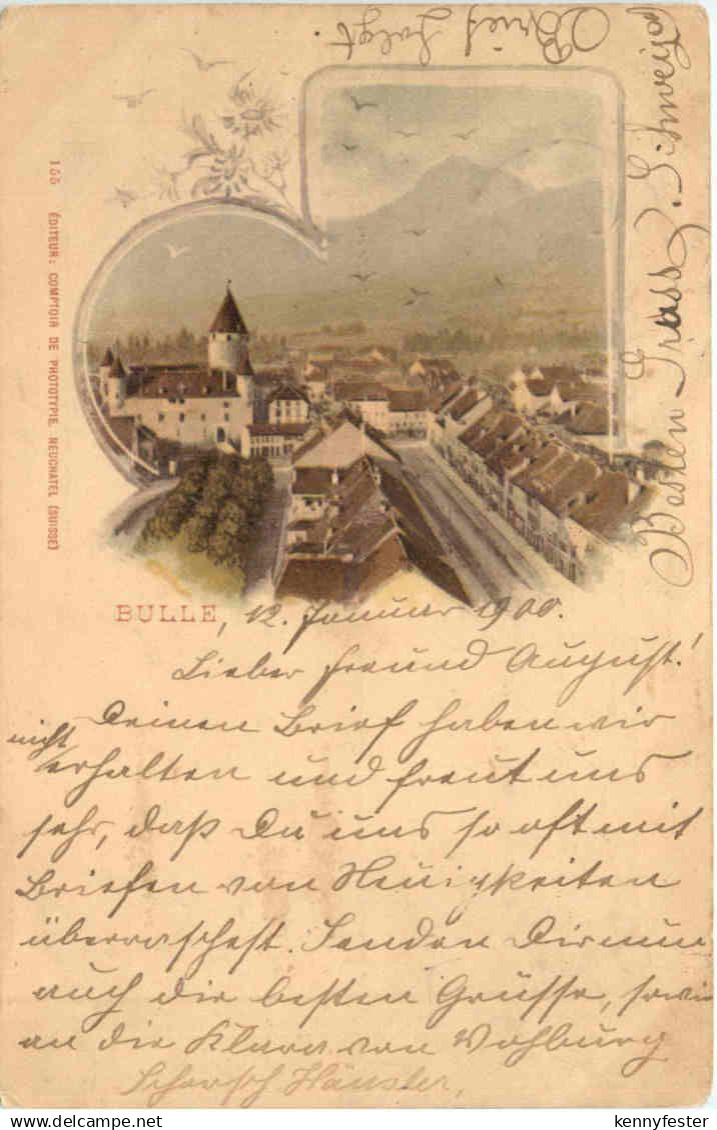 Brief folgt.
Besten Gruss L. Schwester
155 ÉDITEUR: COMPTOIR DE PHOTOTYPIE, NEUCHATEL (SUISSE)
BULLE, 12. Januar 1900.
Lieber Freund August!
Deinen Brief haben wir
nicht
erhalten und freut uns
sehr, daß Du uns so oft mit
Briefen von Neuigkeiten
überraschest. Senden Dir nun
auch die besten Grüsse, sowie
an die Klara von Vohburg
Häusler,
kennyfester